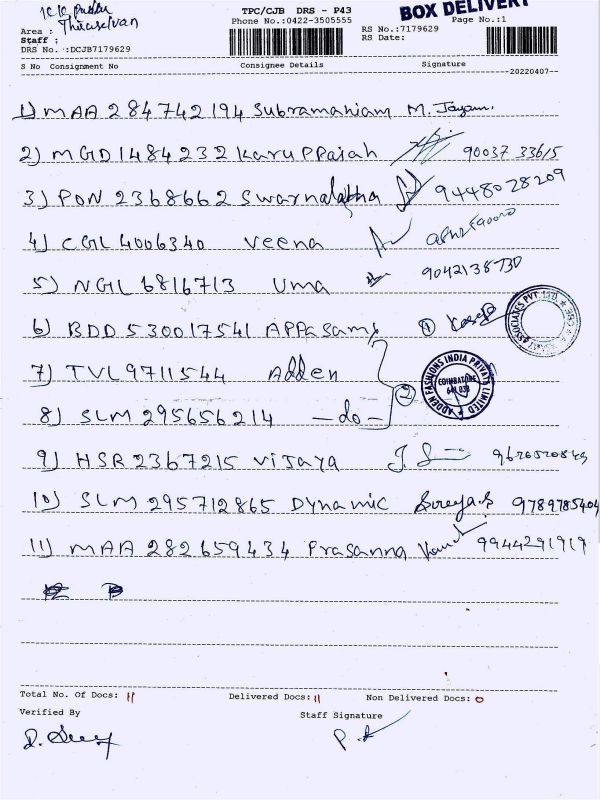 BOX DELIVERY
TPC/CJB DRS - P43
Phone No.:0422-3505555
Page No.:1
RS No.:7179629
RS Date:
Area :
Thiraselvan
Staff :
DRS No. :DCJB7179629
S No Consignment No Consignee Details Signature
20220407
1) MAA 284742194 Subramaniam M. Jayam.
2) MGD1484232 Karuppaiah 90037 33615
3) PON 2368662 Swarnalatha 9448028209
4) CGL 4006340 Veena
5) NGL 6816713 Uma
6) BDD 530017541 APPasamy ①
7) TVL9711544 Adden
8) SLM 295656214 — do — ②
ADDEN FASHIONS INDIA PRIVATE LIMITED
COIMBATORE
9) HSR 2367215 Vijaya
10) SLM 295712865 Dynamic 9789785404
11) MAA 282659434 Prasanna 9944291919
Total No. Of Docs: 11 Delivered Docs: 11 Non Delivered Docs: 0
Verified By Staff Signature